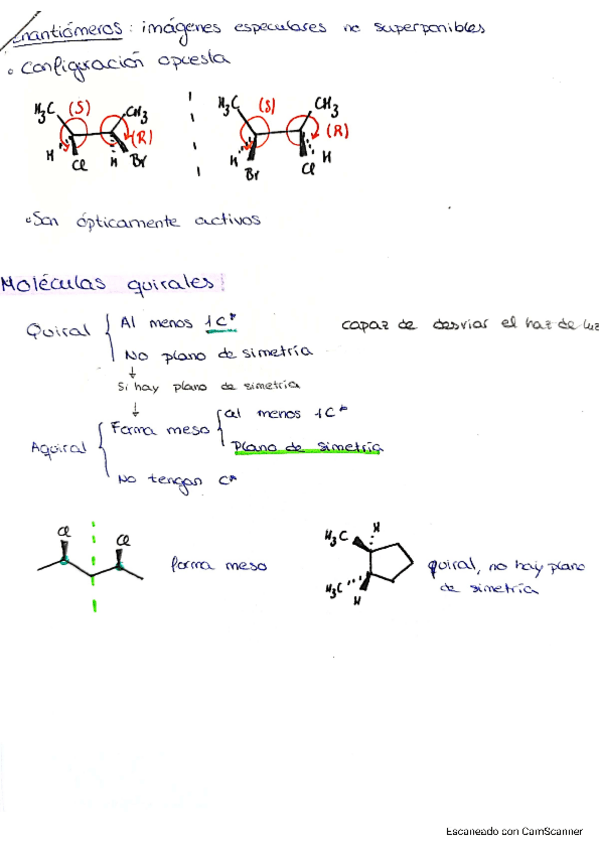 Enantiómeros: imágenes especulares no superponibles
• Configuración opuesta
H₃C (S) CH₃ (R) H Cl H Br
H₃C (S) CH₃ (R) H Br Cl H
• Son ópticamente activos
Moléculas quirales:
Quiral { Al menos 1C* capaz de desviar el haz de luz
No plano de simetría
↓
Si hay plano de simetría
↓
Aquiral { Forma meso { al menos 1C*
Plano de simetría
No tengan C*
Cl Cl forma meso
H₃C H H₃C H quiral, no hay plano
de simetría
Escaneado con CamScanner